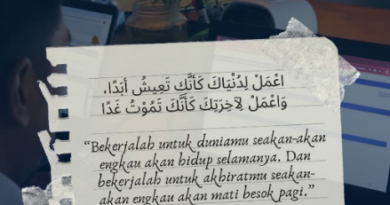 اعْمَلْ لِدُنْيَاكَ كَأَنَّكَ تَعِيشُ أَبَدًا،
وَاعْمَلْ لِآخِرَتِكَ كَأَنَّكَ تَمُوْتُ غَدًا
“Bekerjalah untuk duniamu seakan-akan
engkau akan hidup selamanya. Dan
bekerjalah untuk akhiratmu seakan-
akan engkau akan mati besok pagi.”